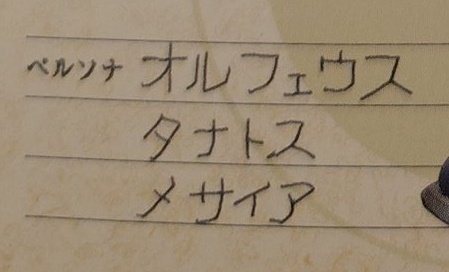 ペルソナ オルフェウス
タナトス
メサイア